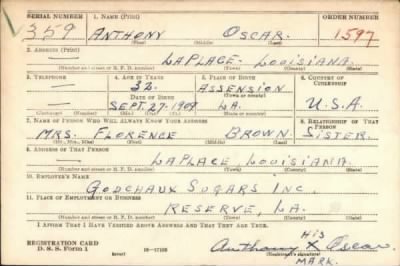 SERIAL NUMBER 1. NAME (Print) ORDER NUMBER
359 ANTHONY OSCAR. 1597
(First) (Middle) (Last)
2. ADDRESS (Print)
LAPLACE. LOUISIANA.
(Number and street or R. F. D. number) (Town) (County) (State)
3. TELEPHONE 4. AGE IN YEARS 5. PLACE OF BIRTH 6. COUNTRY OF CITIZENSHIP
32 ASSENSION
DATE OF BIRTH (Town or county)
SEPT. 27-1909 LA. U.S.A.
(Exchange) (Number) (Mo.) (Day) (Yr.) (State or country)
7. NAME OF PERSON WHO WILL ALWAYS KNOW YOUR ADDRESS 8. RELATIONSHIP OF THAT PERSON
MRS. FLORENCE BROWN SISTER.
(Mr., Mrs., Miss) (First) (Middle) (Last)
9. ADDRESS OF THAT PERSON
LAPLACE, LOUISIANA.
(Number and street or R. F. D. number) (Town) (County) (State)
10. EMPLOYER'S NAME
GODCHAUX SUGARS INC.
11. PLACE OF EMPLOYMENT OR BUSINESS
RESERVE, LA.
(Number and street or R. F. D. number) (Town) (County) (State)
I AFFIRM THAT I HAVE VERIFIED ABOVE ANSWERS AND THAT THEY ARE TRUE.
HIS
REGISTRATION CARD
D. S. S. Form 1 (over) Anthony X Oscar
(Registrant's signature)
MARK.